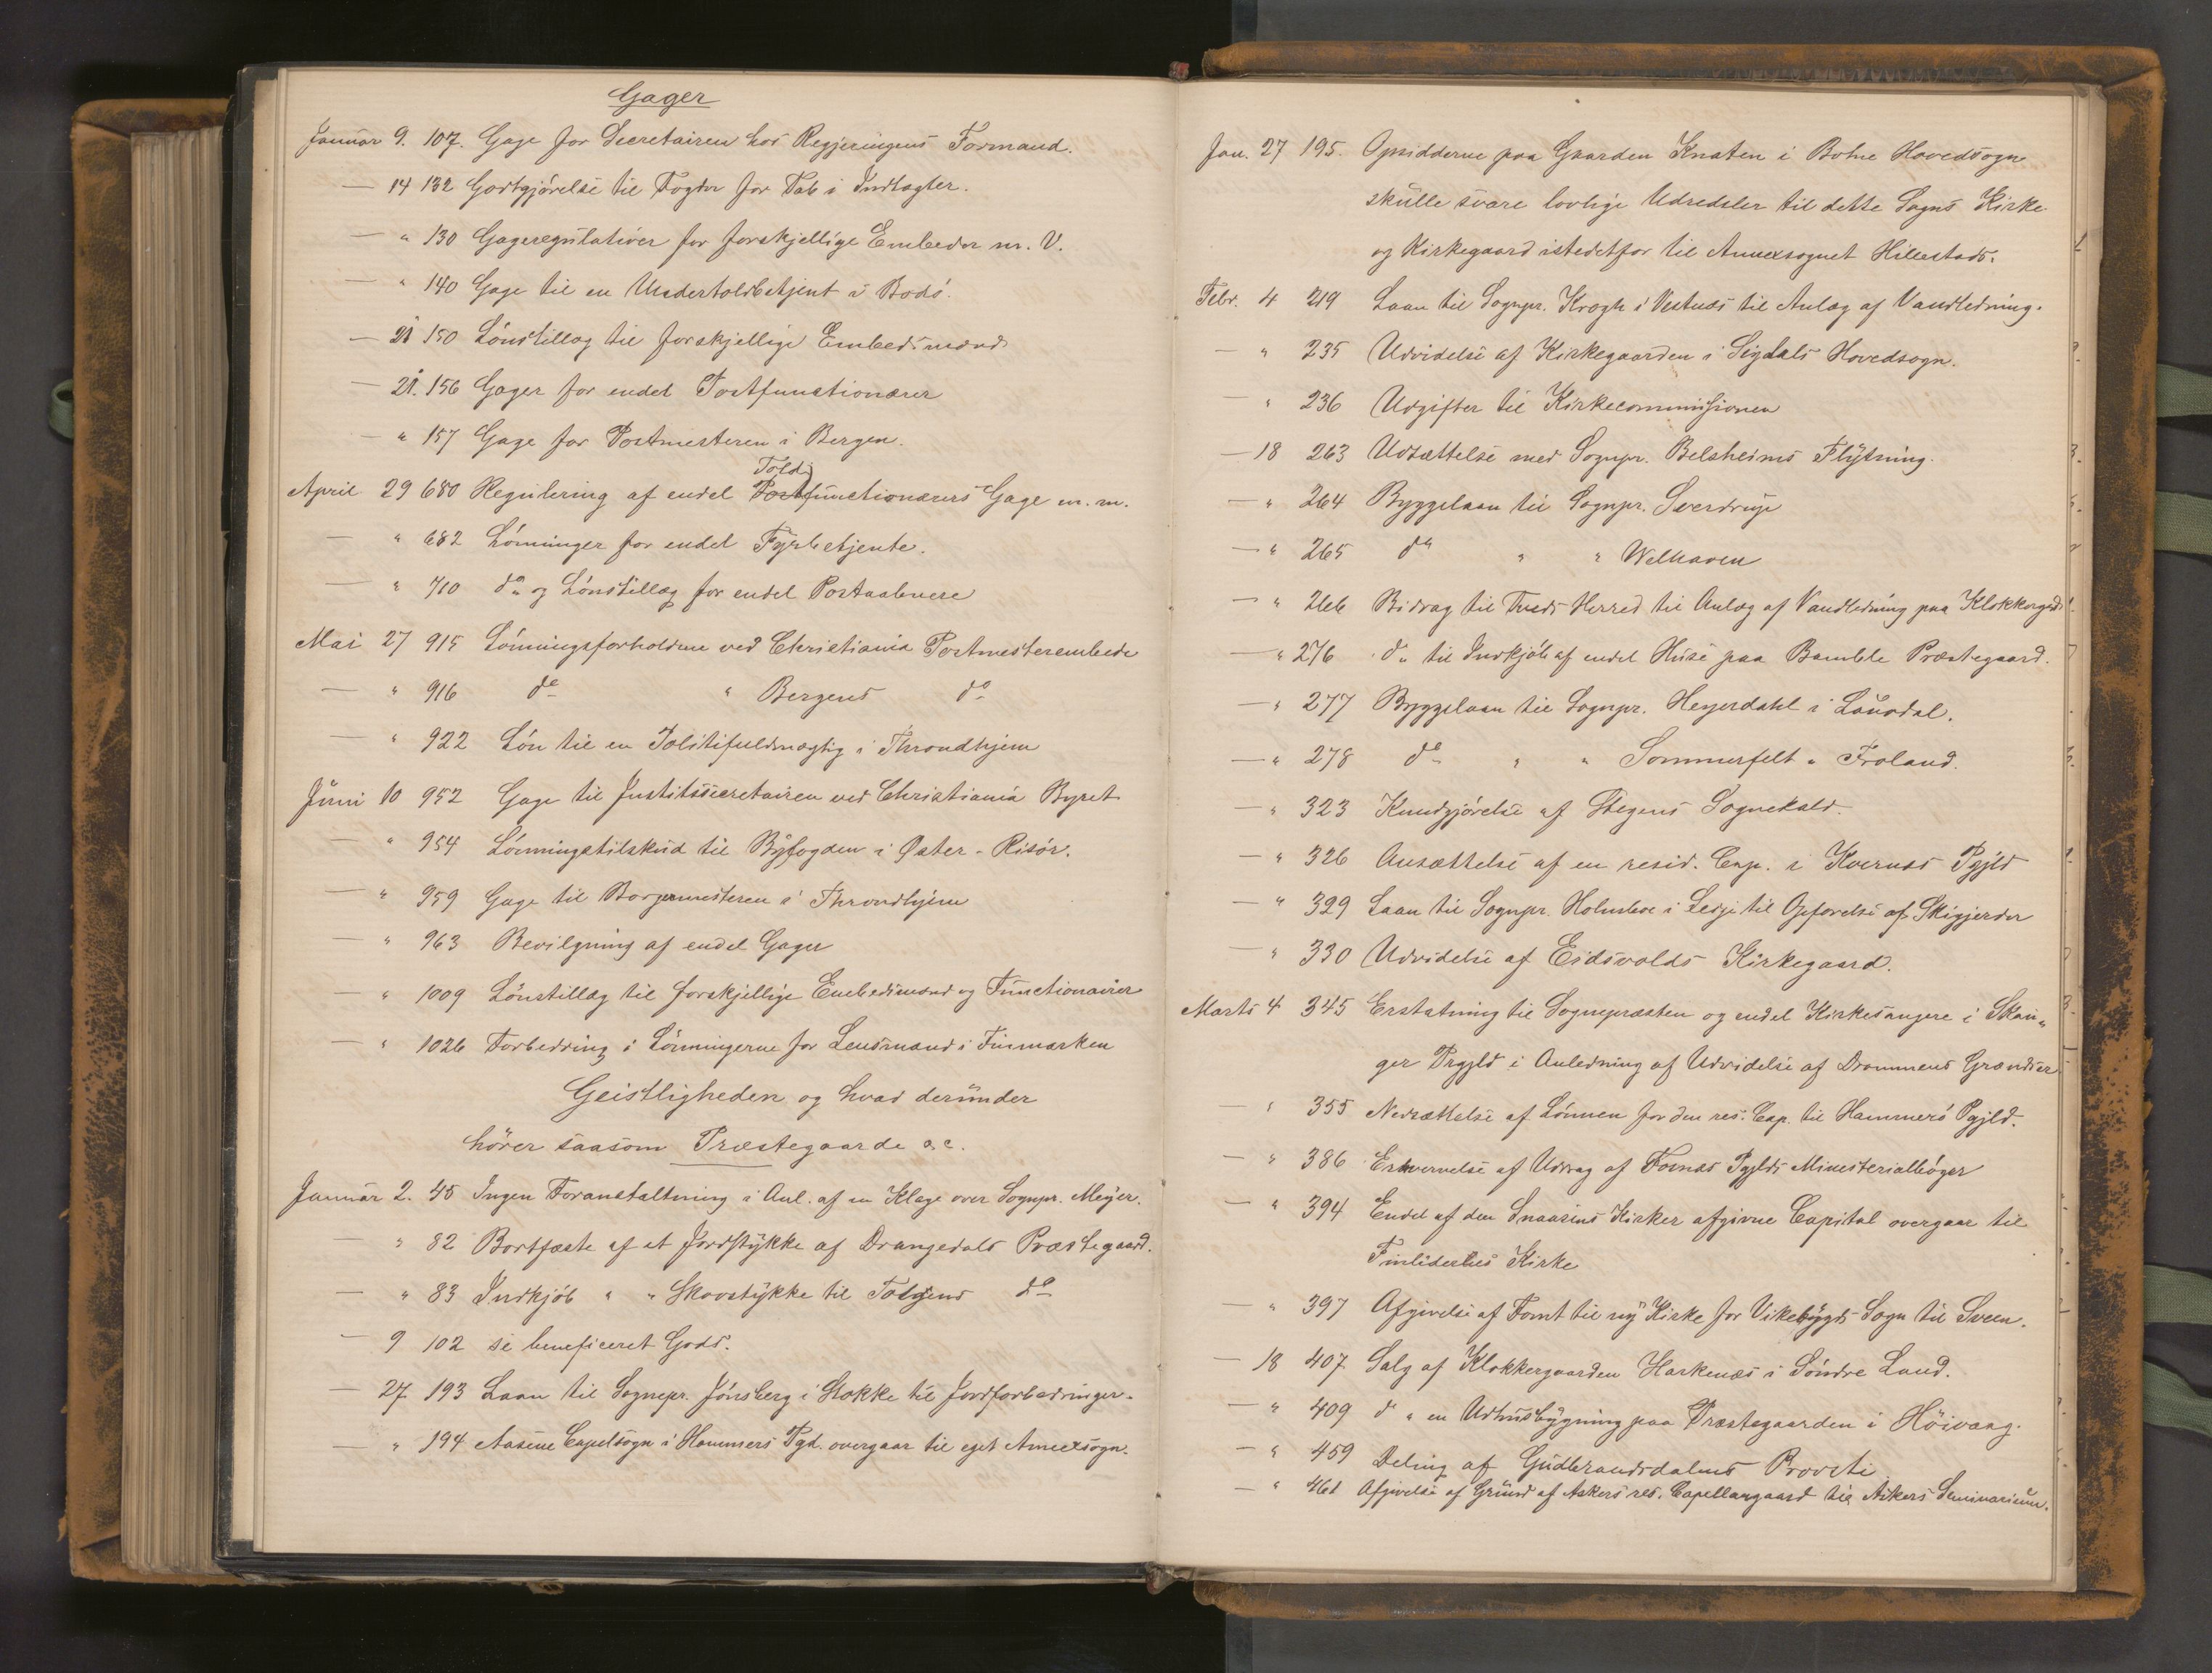 Gager
Januar 9. 107. Gage for Secretairen hos Regjeringens Formand.
— 14 132 Godtgjörelse til Fogder for Tab i Indtægter.
— " 130 Gageregulativer for forskjellige Embeder m. V.
— " 140 Gage til en Undertoldbetjent i Bodö.
— 21 150 Lönstillæg til forskjellige Embedsmænd
— 21. 156 Gager for endel Postfunctionærer
— " 157 Gage for Postmesteren i Bergen.
Told
April 29 680 Regulering af endel Postfunctionærers Gage m. m.
— " 682 Lönninger for endel Fyrbetjente.
— " 710 do og Lönstillæg for endel Postaabnere
Mai 27 915 Lönningsforholdene ved Christiania Postmesterembede
— " 916 do " Bergens do
— " 922 Lön til en Politifuldmægtig i Throndhjem
Juni 10 952 Gage til Justitssecretairen ved Christiania Byret
— " 954 Lönningstilskud til Byfogden i Øster-Risör.
— " 959 Gage til Borgermesteren i Throndhjem
— " 963 Bevilgning af endel Gager
— " 1009 Lönstillæg til forskjellige Embedsmænd og Functionairer
— " 1026 Forbedring i Lönningerne for Lensmænd i Finmarken
Geistligheden og hvad derunder
hörer saasom Præstegaarde &c.
Januar 2. 45 Ingen Foranstaltning i Anl. af en Klage over Sognpr. Meyer.
— " 82 Bortfæste af et Jordstykke af Drangedals Præstegaard.
— " 83 Indkjöb " " Skovstykke til Tolgens do
— 9 102 se beneficeret Gods.
— 27. 193 Laan til Sognepr. Jönsberg i Stokke til Jordforbedringer.
— " 194 Aasene Capelsogn i Hammers Pgd. overgaar til eget Annexsogn.
Jan. 27 195. Opsidderne paa Gaarden Knaten i Botne Hovedsogn
skulle svare lovlige Udredsler til dette Sogns Kirke
og Kirkegaard istedetfor til Annexsognet Hillestads.
Febr. 4 219 Laan til Sognpr. Krogh i Vestnæs til Anlæg af Vandledning.
— " 235 Udvidelse af Kirkegaarden i Sigdals Hovedsogn.
— " 236 Udgifter til Kirkecommissionen
— 18 263 Udsættelse med Sognpr. Belsheims Flytning.
— " 264 Byggelaan til Sognpr. Sverdrup
— " 265 do " " Welhaven
— " 266 Bidrag til Træds Herred til Anlæg af Vandledning paa Klokkergrd
— " 276 do til Indkjöb af endel Huse paa Bamble Præstegaard.
— " 277 Byggelaan til Sognpr. Heyerdahl i Laurdal.
— " 278 do " " Sommerfelt " Froland.
— " 323 Kundgjörelse af Stegens Sognekald.
— " 326 Ansættelse af en resid. Cap. i Kvernæs Pgjld
— " 329 Laan til Sognpr. Holmboe i Ledje til Opförelse af Skigjerder
— " 330 Udvidelse af Eidsvolds Kirkegaard.
Marts 4 345 Erstatning til Sognepræsten og endel Kirkesangere i Skau-
ger Prgjld i Anledning af Udvidelse af Drammens Grændser
— " 355 Nedsættelse af Lönnen for den res. Cap. til Hammerö Pgjld.
— " 386 Erhvervelse af Uddrag af Fosnæs Pgjlds Ministerialböger
— " 394 Endel af den Snaasens Kirker afgivne Capital overgaar til
Finlidernes Kirke
— " 397 Afgivelse af Tomt til ny Kirke for Vikebygds Sogn til Sveen.
— 18 407 Salg af Klokkergaarden Harkenæs i Söndre Land.
— " 409 do " en Udhusbygning paa Præstegaarden i Höivaag.
— " 459 Deling af Gudbrandsdalens Provsti
— " 461 Afgivelse af Grund af Askers res. Capellangaard til Askers Seminarium.